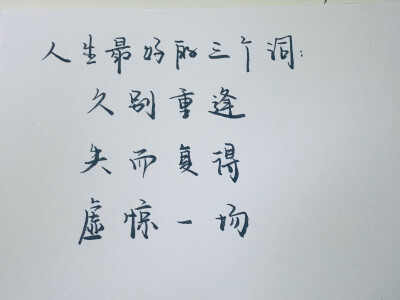 人生最好的三个词:
久别重逢
失而复得
虚惊一场